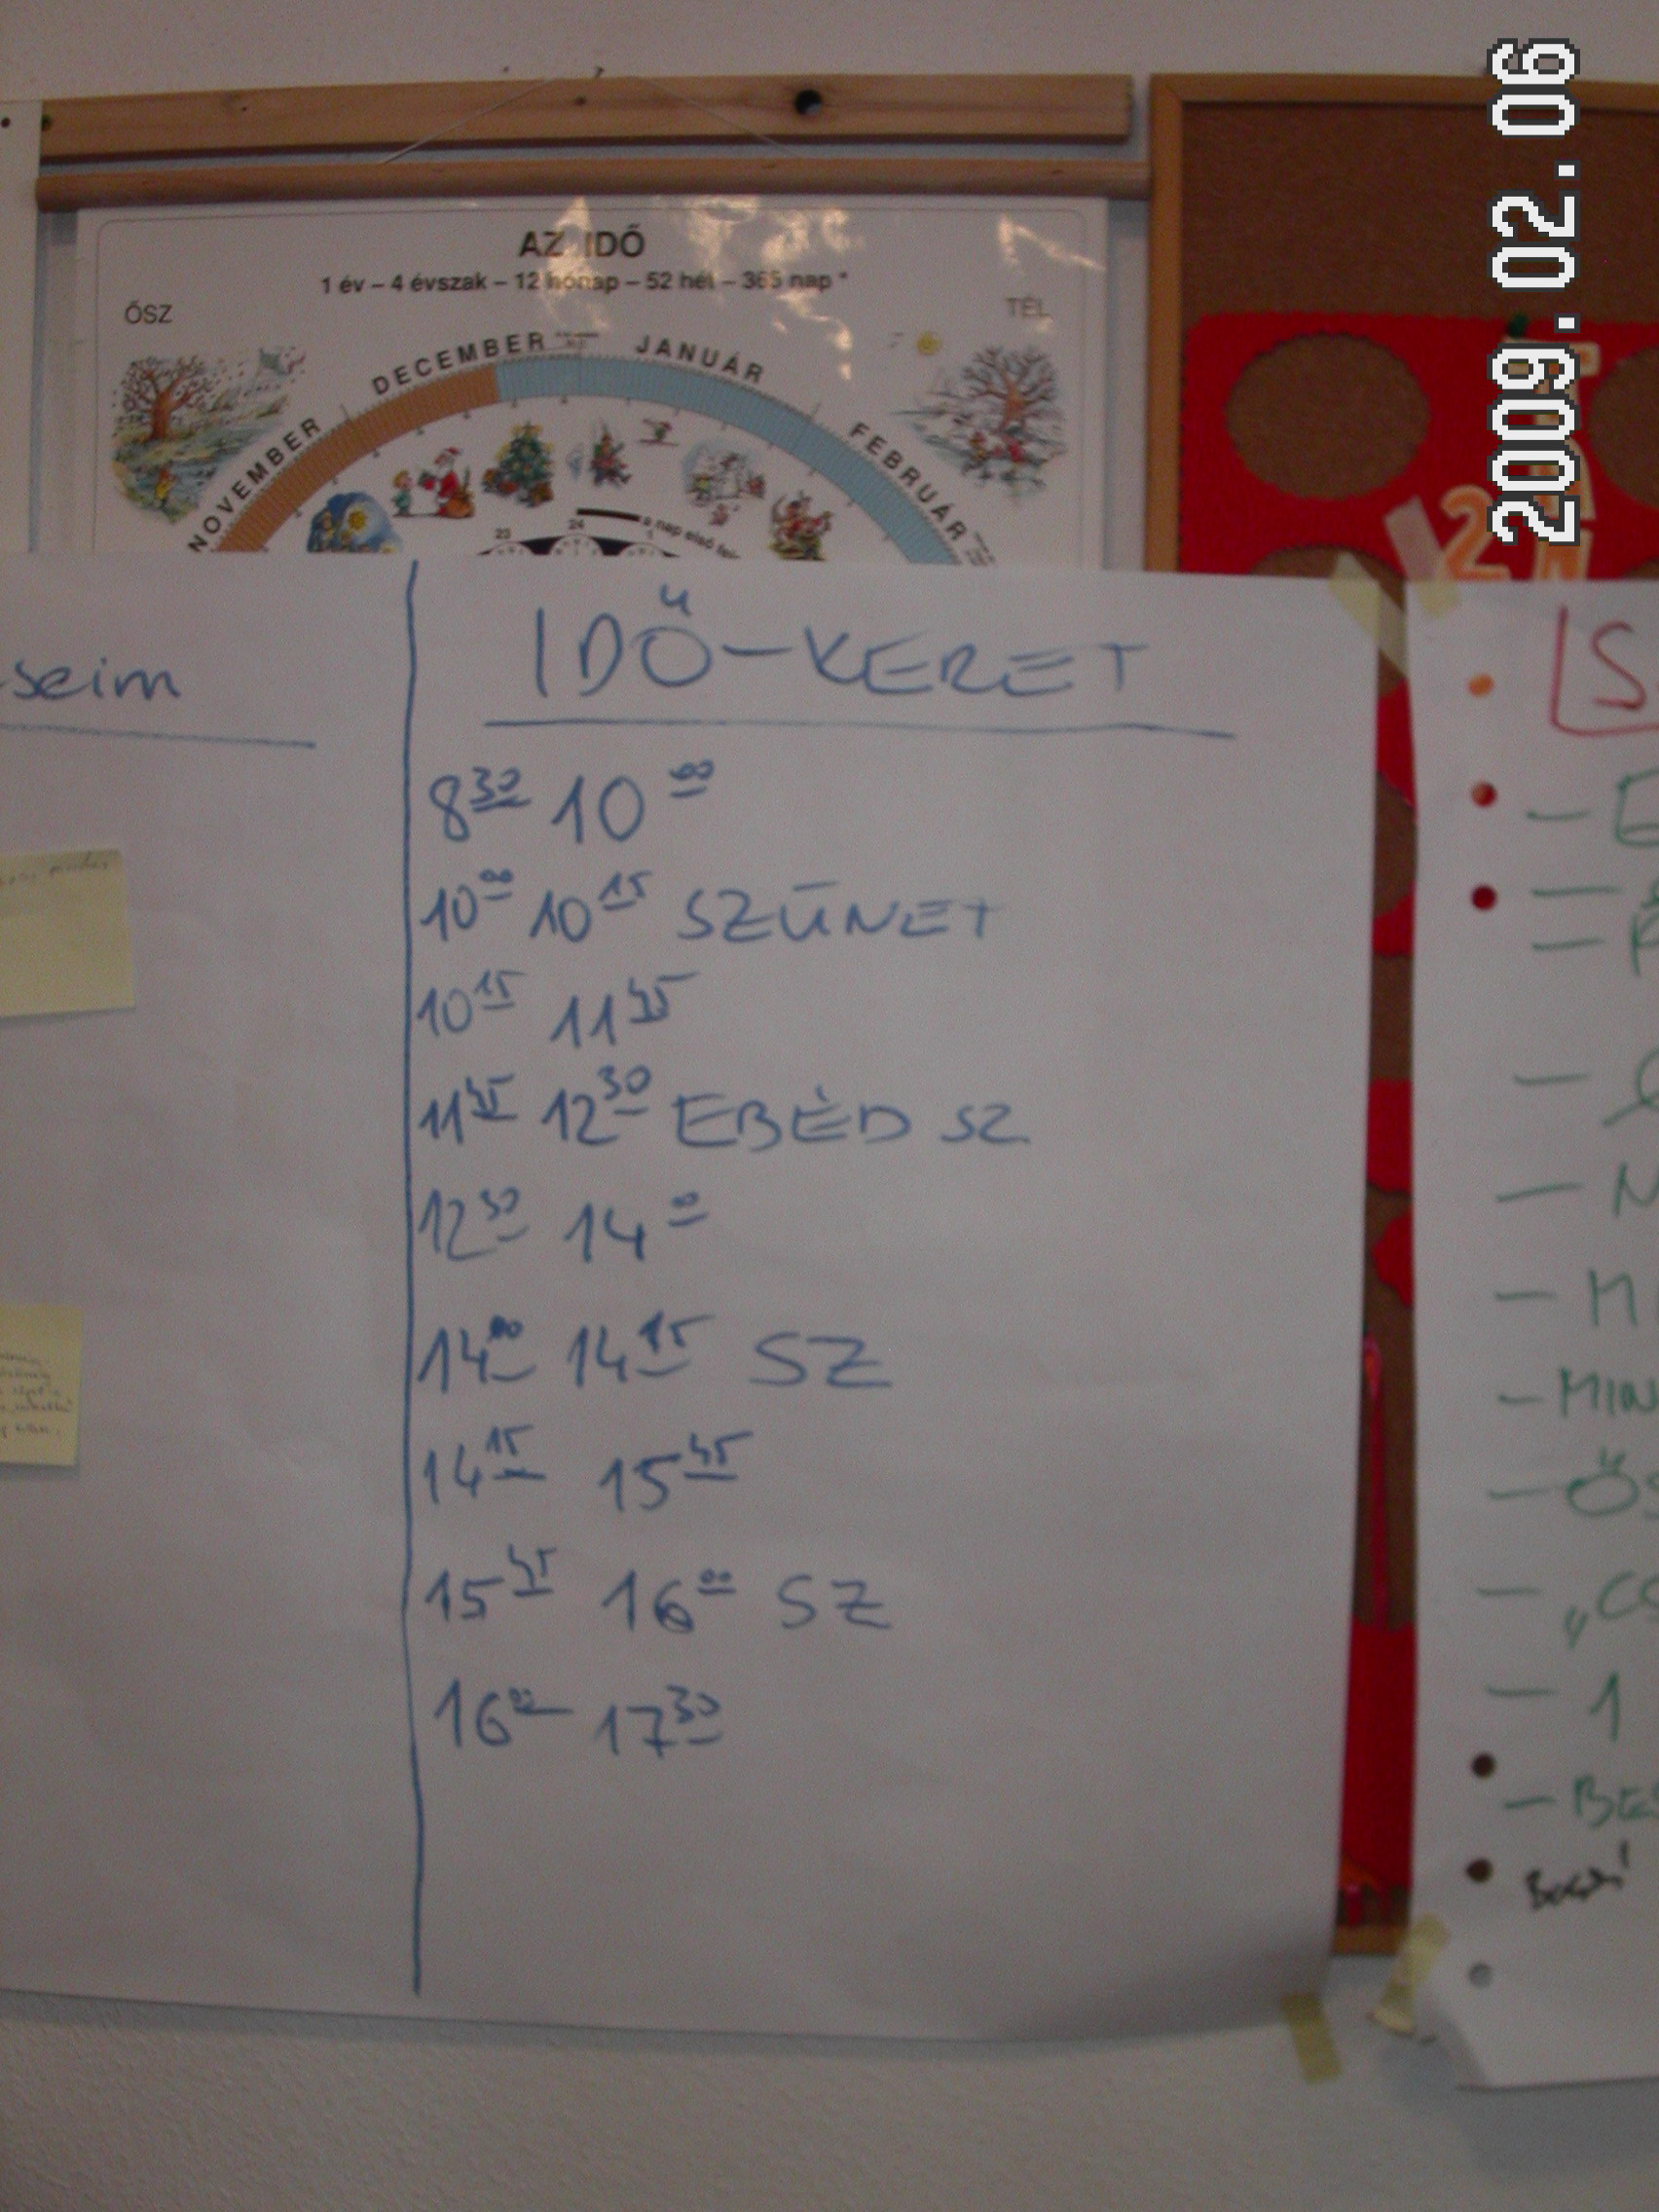 2009.02.06
AZ IDŐ
1 év – 4 évszak – 12 hónap – 52 hét – 365 nap *
ŐSZ
TÉL
NOVEMBER
DECEMBER
JANUÁR
FEBRUÁR
23
24
1
a nap első
seim
IDŐ-KERET
8 30 10 00
10 00 10 15 SZŪNET
10 15 11 45
11 45 12 30 EBÉD SZ
12 30 14 00
14 00 14 15 SZ
14 15 15 45
15 45 16 00 SZ
16 00 – 17 30
S
–
–
–
–
– N
– M
– MIN
– ŐS
– „CS
– 1
– BES